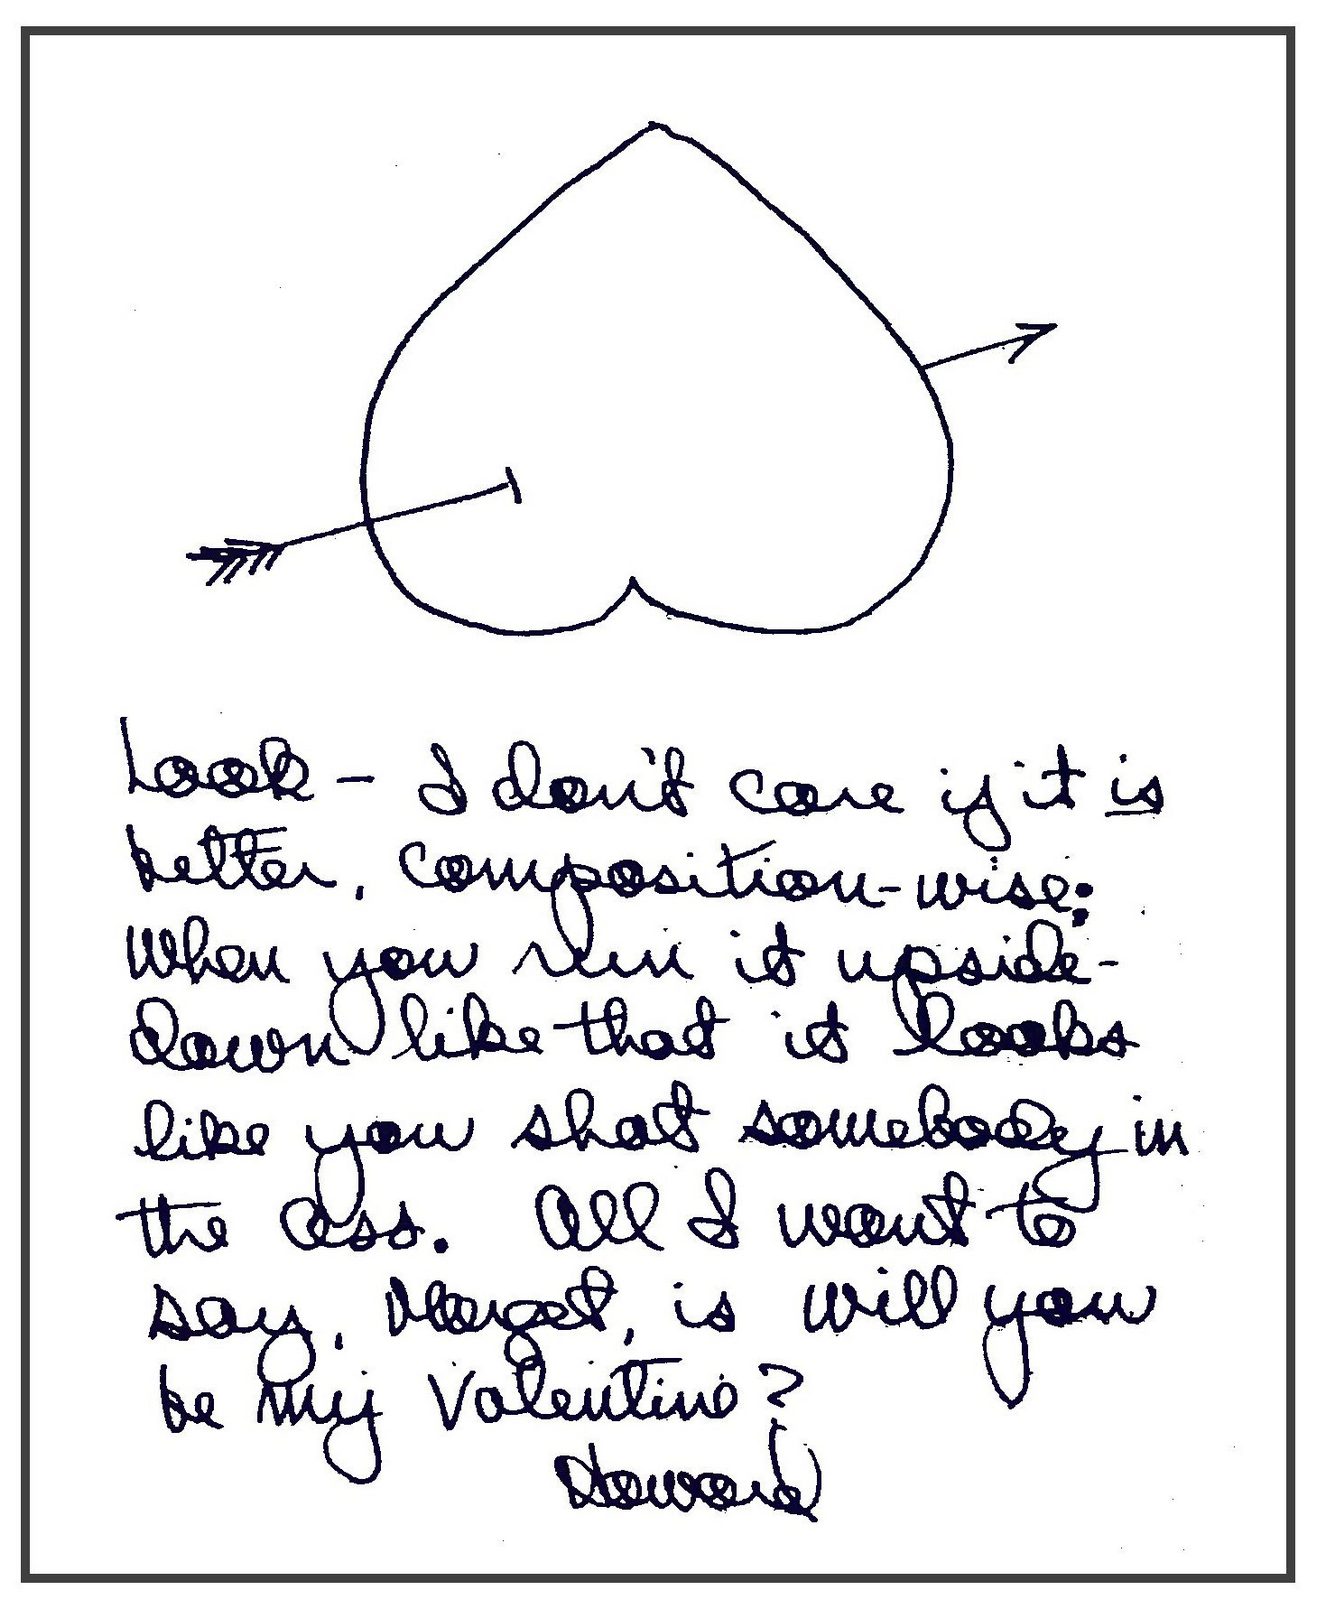 Look – I don't care if it is
better, composition-wise:
When you run it upside-
down like that it looks
like you shot somebody in
the ass. All I want to
say, Marget, is will you
be my Valentine?
Howard